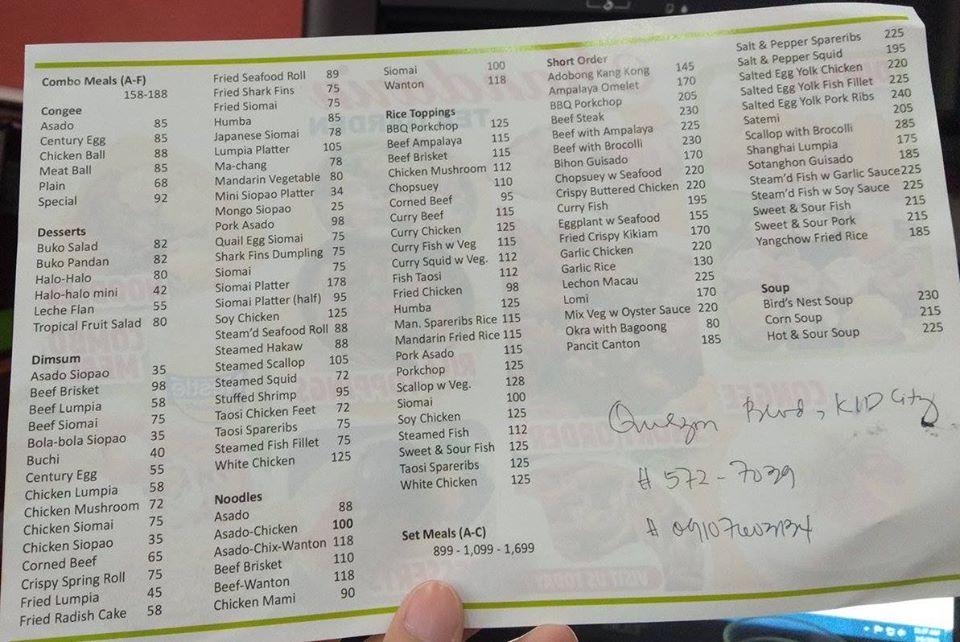 Combo Meals (A-F)
158-188
Congee
Asado 85
Century Egg 85
Chicken Ball 88
Meat Ball 85
Plain 68
Special 92
Desserts
Buko Salad 82
Buko Pandan 82
Halo-Halo 80
Halo-halo mini 42
Leche Flan 55
Tropical Fruit Salad 80
Dimsum
Asado Siopao 35
Beef Brisket 98
Beef Lumpia 58
Beef Siomai 75
Bola-bola Siopao 35
Buchi 40
Century Egg 55
Chicken Lumpia 58
Chicken Mushroom 72
Chicken Siomai 75
Chicken Siopao 35
Corned Beef 65
Crispy Spring Roll 75
Fried Lumpia 45
Fried Radish Cake 58
Fried Seafood Roll 89
Fried Shark Fins 75
Fried Siomai 75
Humba 85
Japanese Siomai 78
Lumpia Platter 105
Ma-chang 78
Mandarin Vegetable 80
Mini Siopao Platter 34
Mongo Siopao 25
Pork Asado 98
Quail Egg Siomai 75
Shark Fins Dumpling 75
Siomai 75
Siomai Platter 178
Siomai Platter (half) 95
Soy Chicken 125
Steam'd Seafood Roll 88
Steamed Hakaw 88
Steamed Scallop 105
Steamed Squid 72
Stuffed Shrimp 95
Taosi Chicken Feet 72
Taosi Spareribs 75
Steamed Fish Fillet 75
White Chicken 125
Noodles
Asado 88
Asado-Chicken 100
Asado-Chix-Wanton 118
Beef Brisket 110
Beef-Wanton 118
Chicken Mami 90
Siomai 100
Wanton 118
Rice Toppings
BBQ Porkchop 125
Beef Ampalaya 115
Beef Brisket 115
Chicken Mushroom 112
Chopsuey 110
Corned Beef 95
Curry Beef 115
Curry Chicken 125
Curry Fish w Veg 115
Curry Squid w Veg. 112
Fish Taosi 112
Fried Chicken 98
Humba 125
Man. Spareribs Rice 115
Mandarin Fried Rice 115
Pork Asado 115
Porkchop 125
Scallop w Veg. 128
Siomai 100
Soy Chicken 125
Steamed Fish 112
Sweet & Sour Fish 125
Taosi Spareribs 125
White Chicken 125
Set Meals (A-C)
899 - 1,099 - 1,699
Short Order
Adobong Kang Kong 145
Ampalaya Omelet 170
BBQ Porkchop 205
Beef Steak 230
Beef with Ampalaya 225
Beef with Brocolli 230
Bihon Guisado 170
Chopsuey w Seafood 220
Crispy Buttered Chicken 220
Curry Fish 195
Eggplant w Seafood 155
Fried Crispy Kikiam 170
Garlic Chicken 220
Garlic Rice 130
Lechon Macau 225
Lomi 170
Mix Veg w Oyster Sauce 220
Okra with Bagoong 80
Pancit Canton 185
Salt & Pepper Spareribs 225
Salt & Pepper Squid 195
Salted Egg Yolk Chicken 220
Salted Egg Yolk Fish Fillet 225
Salted Egg Yolk Pork Ribs 240
Satemi 205
Scallop with Brocolli 285
Shanghai Lumpia 175
Sotanghon Guisado 185
Steam'd Fish w Garlic Sauce 225
Steam'd Fish w Soy Sauce 225
Sweet & Sour Fish 215
Sweet & Sour Pork 215
Yangchow Fried Rice 185
Soup
Bird's Nest Soup 230
Corn Soup 215
Hot & Sour Soup 225
Quezon Blvd, KID City
# 572-7039